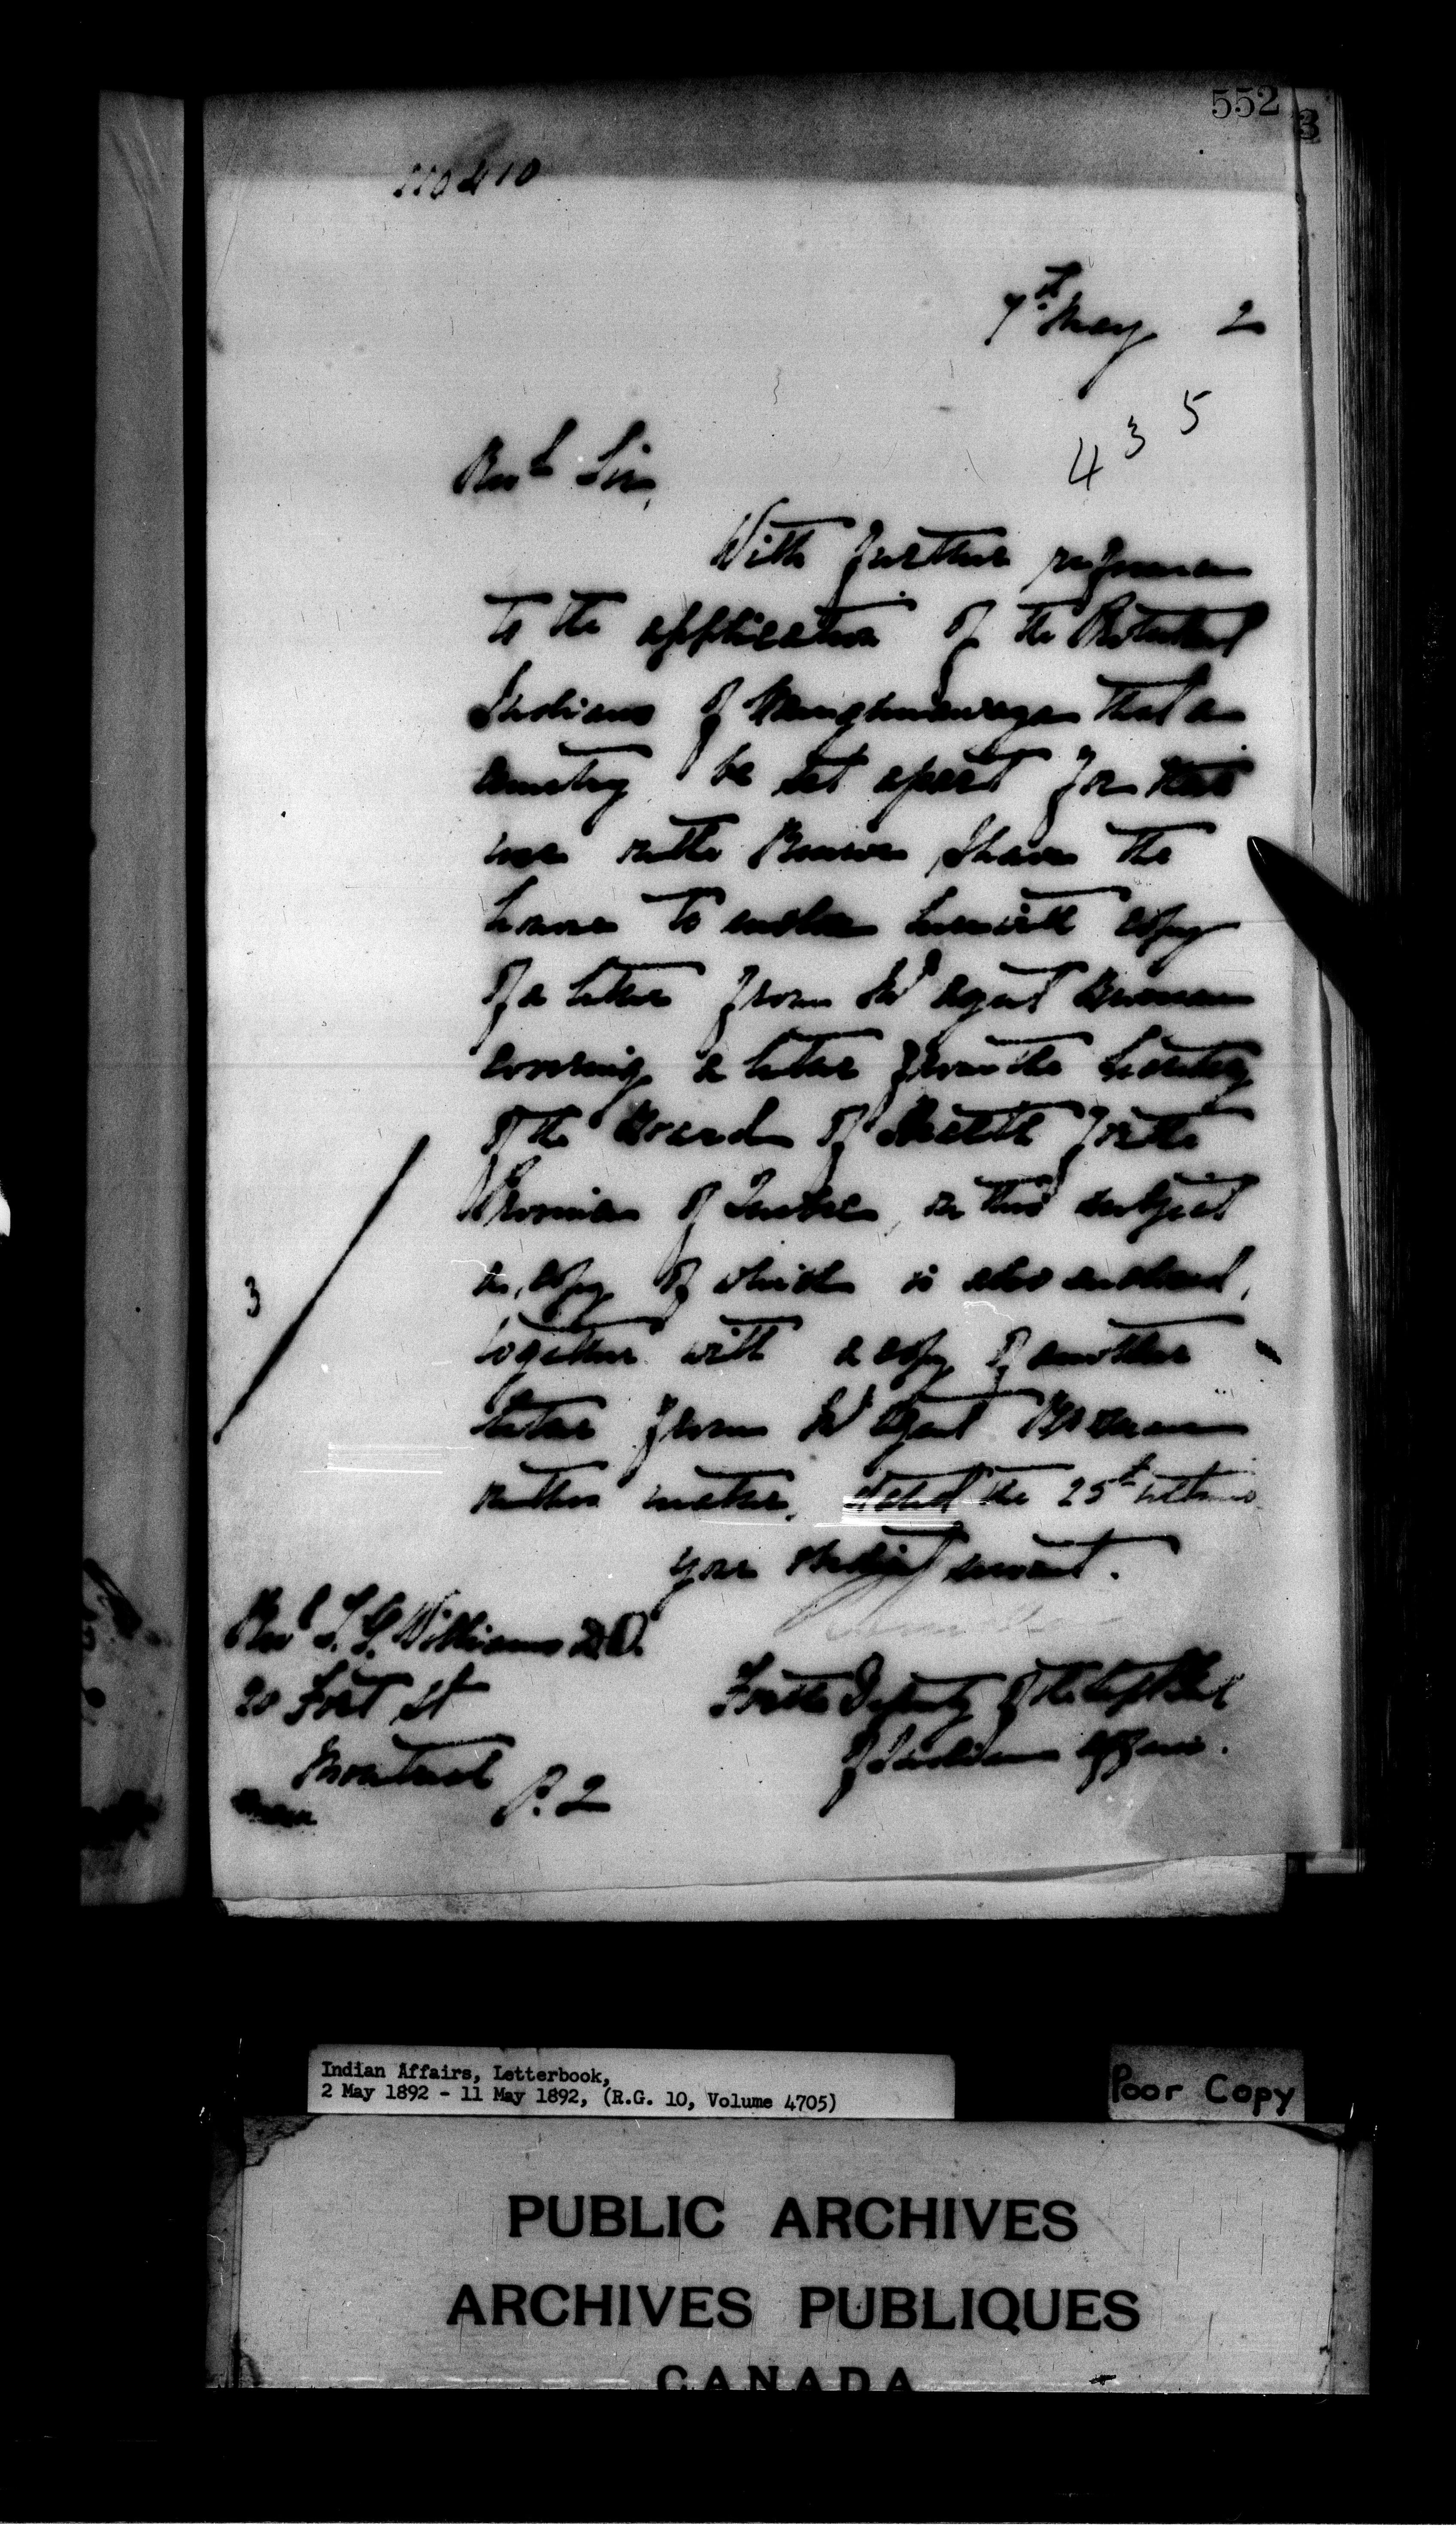 552
3
7th May 2
435
Revd Sir,
With further reference
to the application of the Protestant
Indians of Caughnawaga that a
cemetery be set apart for their
use on the Reserve, I have the
honor to enclose herewith copy
of a letter from Ind Agent Brosseau
covering a letter from the Secretary
of the Board of Health for the
Province of Quebec, on this subject
a copy of which is also enclosed,
together with a copy of another
letter from Ind Agent Brosseau
on the matter, dated the 25th ultimo
3
Your obedient servant.
Revd T. G. Williams D.D.
20 Fort St
Montreal
P.Q
For the Deputy of the Supt Genl
of Indian Affairs.
Indian Affairs, Letterbook,
2 May 1892 - 11 May 1892, (R.G. 10, Volume 4705)
Poor Copy
PUBLIC ARCHIVES
ARCHIVES PUBLIQUES
CANADA